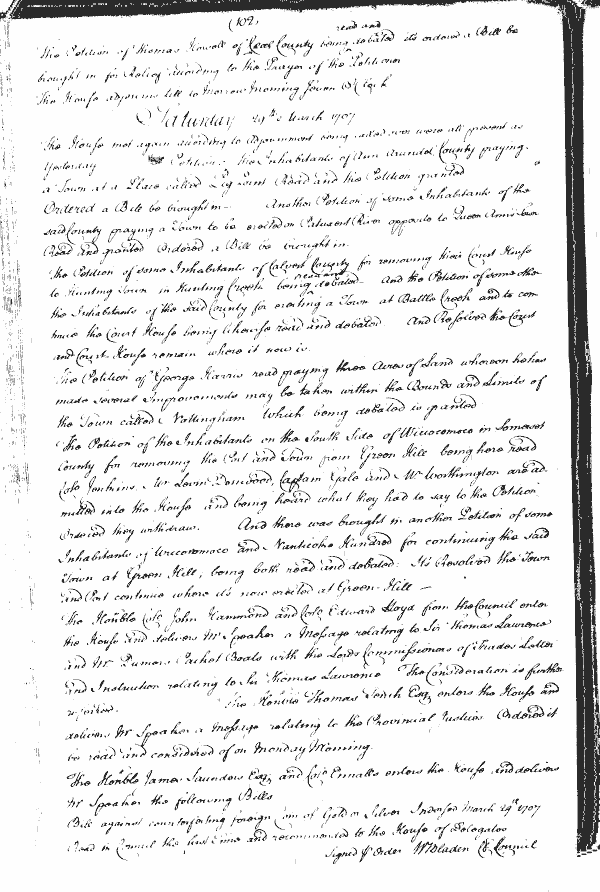 (102)
read and
The Petition of Thomas Howell of Cecil County being debated its ordered a Bill be
brought in for Relief according to the Prayer of the Petitioner
The House adjourns till to Morrow Morning Seven O'Clock
Saturday 29th March 1707
The House met again according to Adjournment being called over were all present as
Yesterday Petition of the Inhabitants of Ann Arundel County praying
a Town at a Place called Road and the Petition granted
Ordered a Bill be brought in — Another Petition of some Inhabitants of the
said County praying a Town to be erected on Patuxent River opposite to Queen Anne Town
Read and granted Ordered a Bill be brought in
The Petition of some Inhabitants of Calvert County for removing their Court House
read and
to Hunting Town in Hunting Creek being debated And the Petition of some other
the Inhabitants of the said County for erecting a Town at Battle Creek and to con
tinue the Court House being likewise read and debated And Resolved the Court
and Court House remain where it now is
The Petition of George Harris read praying three Acres of Land whereon he has
made several Improvements may be taken within the Bounds and Limits of
the Town called Nottingham Which being debated is granted
The Petition of the Inhabitants on the South Side of Wiccocomoco in Somerset
County for removing the Port and Town from Green Hill being here read
Colo Jenkins, Mr Levin Denwood, Captain Gale and Mr Worthington are ad
mitted into the House and being heard what they had to say to the Petition
Ordered they withdraw. And there was brought in another Petition of some
Inhabitants of Wiccocomoco and Nanticoke Hundred for continuing the said
Town at Green Hill, being both read and debated: It's Resolved the Town
and Port continue where it's now erected at Green Hill —
The Honble Colo John Hammond and Colo Edward Lloyd from the Council enter
the House and delivers Mr Speaker a Message relating to Sir Thomas Lawrence
and Mr Dumers Packet Boats with the Lords Commissioners of Trades Letter
and Instruction relating to Sir Thomas Lawrence The Consideration is further
referred. The Honble Thomas Esqr enters the House and
delivers Mr Speaker a Message relating to the Provincial Justices Ordered it
be read and considered of on Monday Morning.
The Honble James Saunders Esqr and Colo Ennalls enters the House and delivers
Mr Speaker the following Bills
Bill against counterfeiting foreign Coin of Gold or Silver Indorsed March 29th 1707
Read in Council the first Time and recommended to the House of Delegates
Signed p Order W Bladen Cl Council